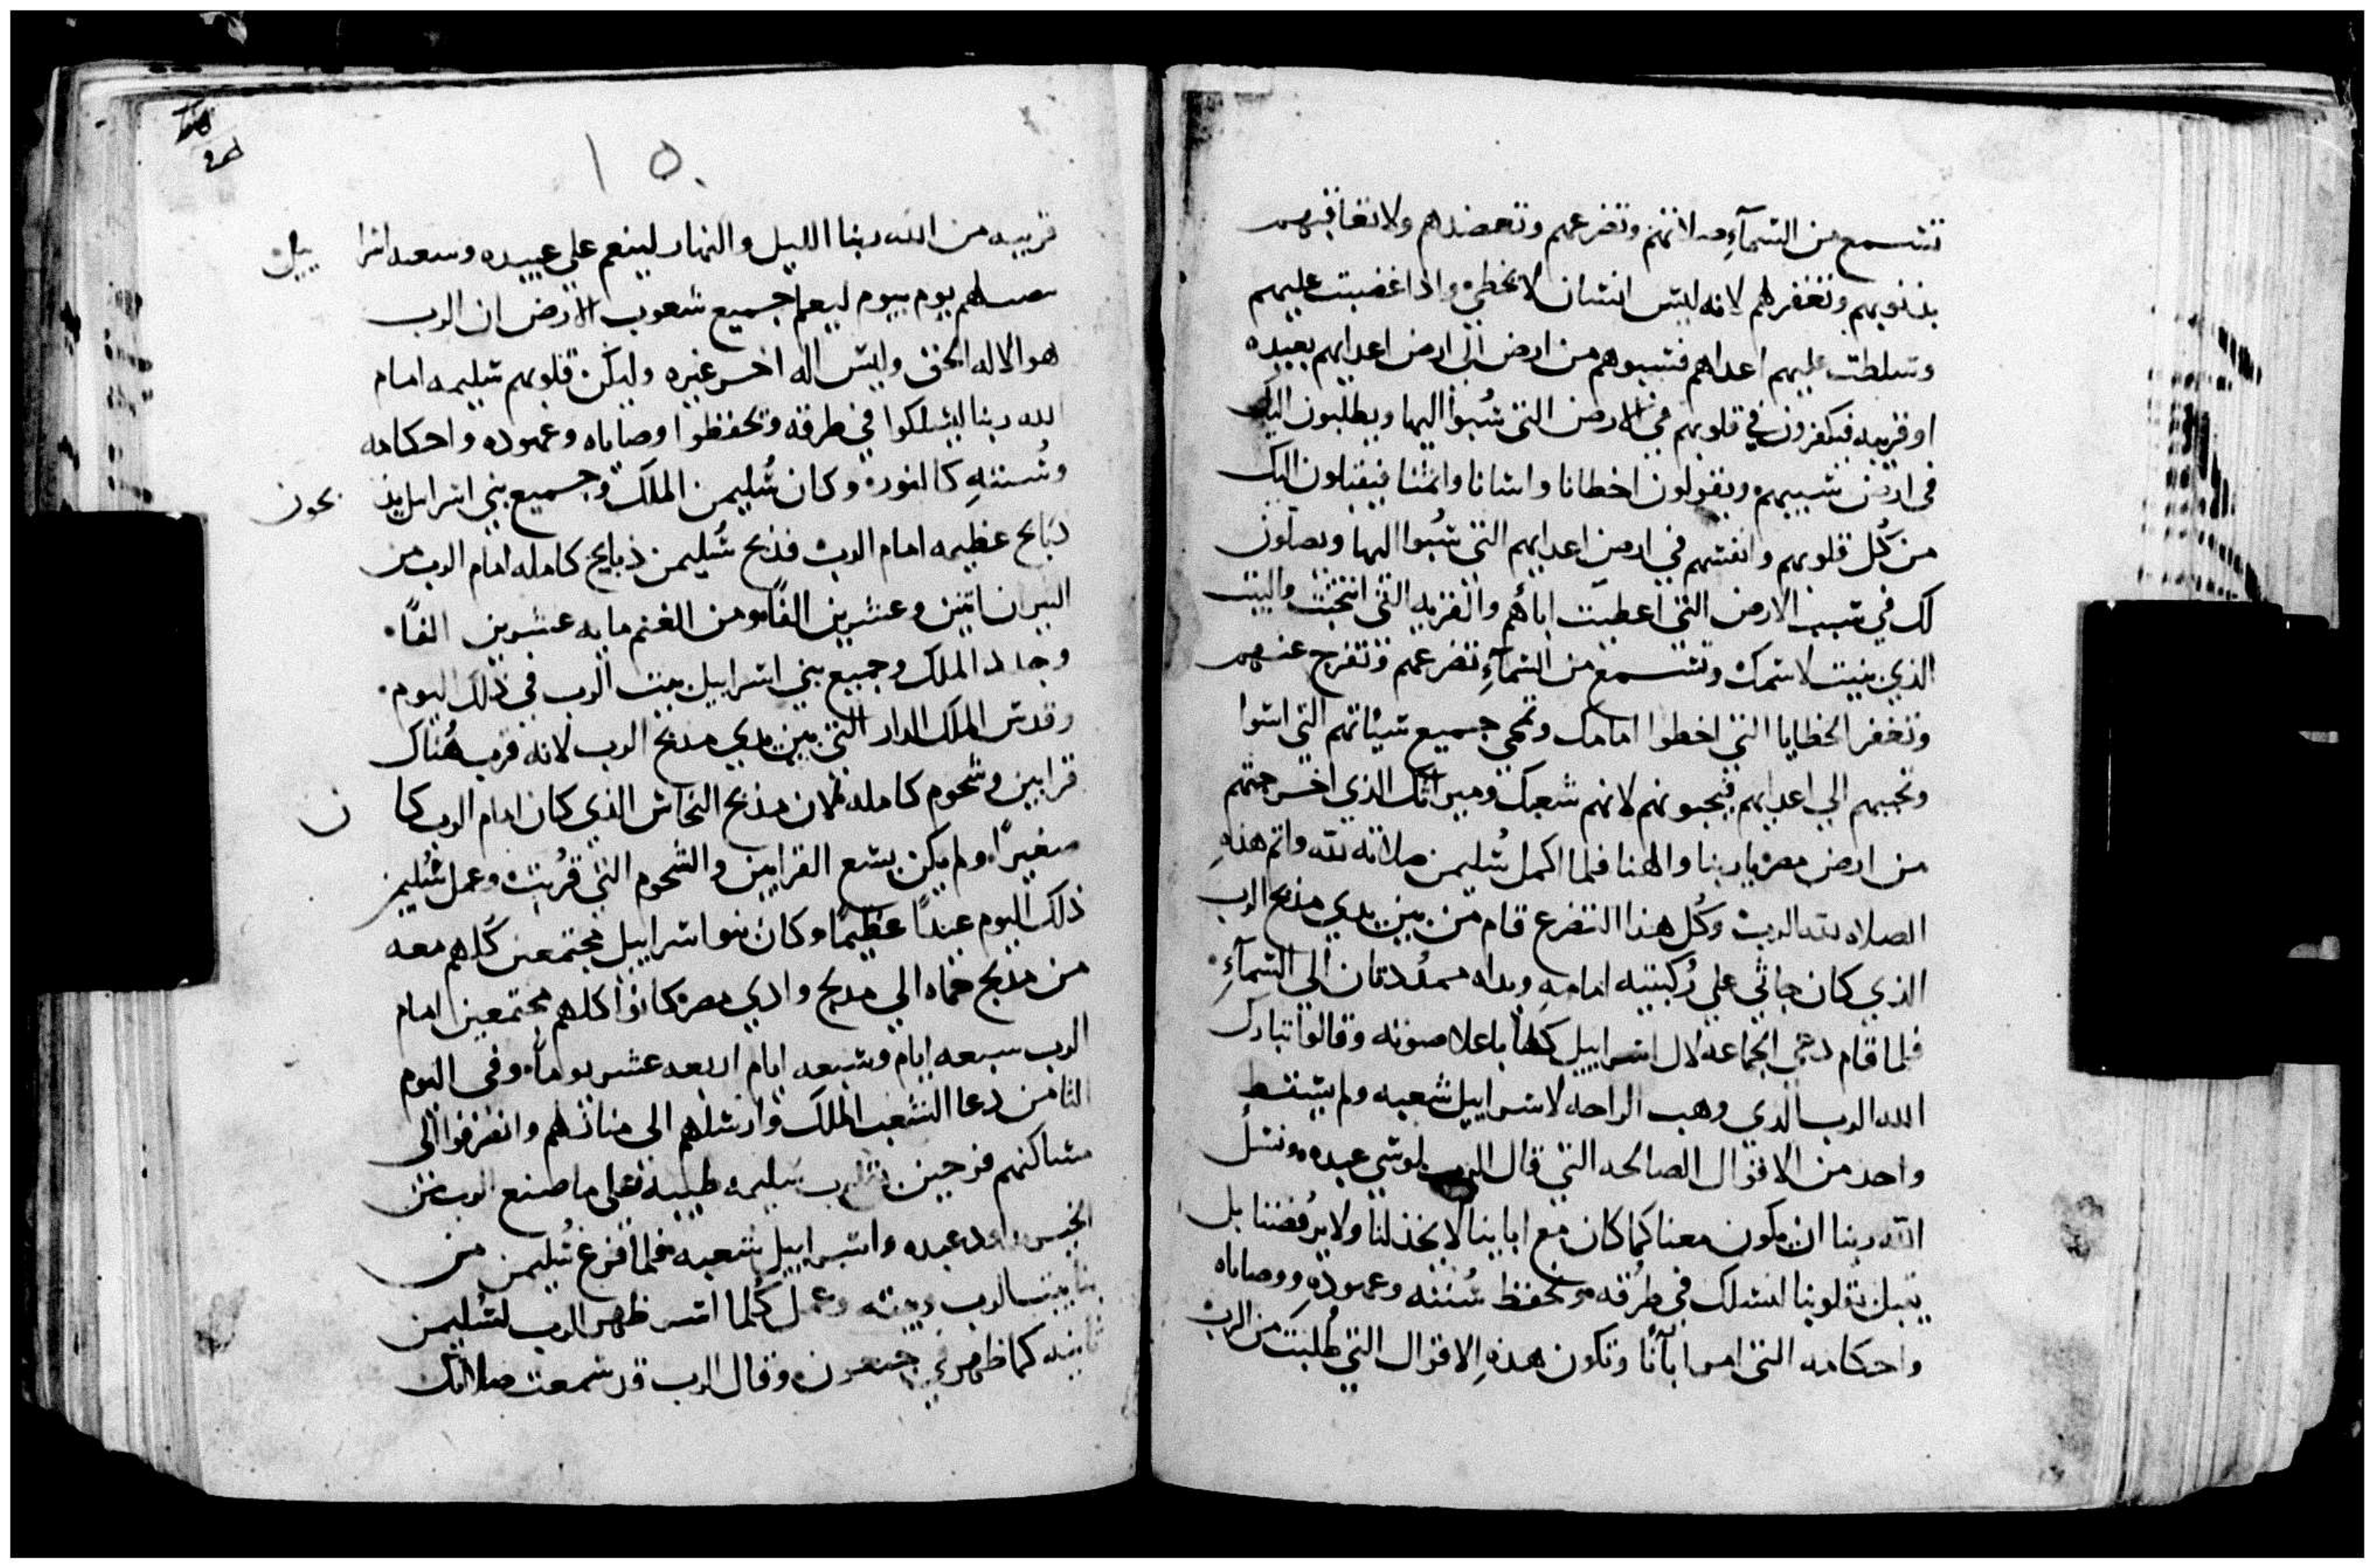 تتسمع من السمآءِ صلاتهم وتضرعهم وتعضدهم ولا تعاقبهم
بذنوبهم وتغفر لهم لانه ليس انسان لا يخطي واذا غضبت عليهم
وتسلطت عليهم اعداهم فسبوهم من ارض الى ارض اعدايهم بعيده
او قريبه فيفكرون في قلوبهم في الارض التي سُبوا اليها ويطلبون اليك
في ارض سبيهم ويقولون اخطانا واسانا واثمنا فيقبلون اليك
من كُل قلوبهم وانفسهم في ارض اعدايهم التي سُبوا اليها ويصلون
لك في سبب الارض التي اعطيت اباهم والقريه التي انتخبت والبيت
الذي بنيت لاسمك وتسمع من السمآءِ تضرعهم وتفرج عنهم
وتغفر الخطايا التي اخطوا امامك وتمحي جميع سيئاتهم التي اسوا
وتحببهم الي اعدايهم فيحبونهم لانهم شعبك وميراثك الذي اخرجتهم
من ارض مصر يا ربنا والهنا فلما اكمل سُليمن صلاته لله واتم هذهِ
الصلاه لله الرب وكُل هذا التضرع قام من بين يدي مذبح الرب
الذي كان جاثي علي رُكبتيه امامهِ ويداه ممدُدتان الي السمآءِ
فلما قام دعي لجماعة ال اسراييل كلها باعلا صوته وقالوا تبارك
الله الرب الذي وهب الراحه لاسراييل شعبه ولم يسقط
واحد من الاقوال الصالحه التي قال الرب لموسي عبده ونسل
الله ربنا ان يكون معنا كما كان مع اباينا لا يخذلنا ولا يرفُضنا بل
يقبل بقلوبنا لنسلك في طرُقه ونحفظ سُننه وعهودهِ ووصاياه
واحكامه التي امر اباَنا وتكون هذهِ الاقوال التي طُلبت من الرب
١٥
قريبه من الله ربنا الليل والنهار لينعم علي عبيده وسعه اسرا ييل
يوم بيوم ليعلم جميع شعوب الارض ان الرب
هو الاله الحق وليس اله اخر غيره وليكن قلوبهم سليمه امام
الله ربنا ليسلكوا في طرقه وتحفظوا وصاياه وعهوده واحكامه
وسُننهِ كاليوم وكان سُليمن الملك وجميع بني اسراييل يذ بحون
ذبايح عظيمه امام الرب فذبح سُليمن ذبايح كامله امام الرب من
الثيران اثنين وعشرين الفًا ومن الغنم مايه عشرين الفًا
وجدد الملك وجميع بني اسراييل بيت الرب في ذلك اليوم
وقدس الملك الدار التي بين يدي مذبح الرب لانه قرب هُناك
قرابين وشحوم كامله لان مذبح النحاس الذي كان امام الرب كا ن
صغيرًا ولم يكن يسع القرابين والشحوم التي قُربت وعمل سُليمن
ذلك اليوم عيدًا عظيمًا وكان بنو اسراييل مجتمعين كُلهم معه
من مذبح حماه الي مذبح وادي مصر كانوا كلهم مجتمعين امام
الرب سبعه ايام وسبعه ايام اربعه عشر يومًا وفي اليوم
الثامن دعا الشعب الملك وارسلهم الي منازلهم وانصرفوا الى
مساكنهم فرحين بقلوب سليمه طيبه على ما صنع الرب من
الخير داود عبده واسراييل شعبه فلما فرغ سُليمن من
بنا بيت الرب وبيته وعمل كُلما اسر ظهر الرب لسُليمن
ثانيه كما ظهر في جبعون وقال الرب قد سمعت صلاتك